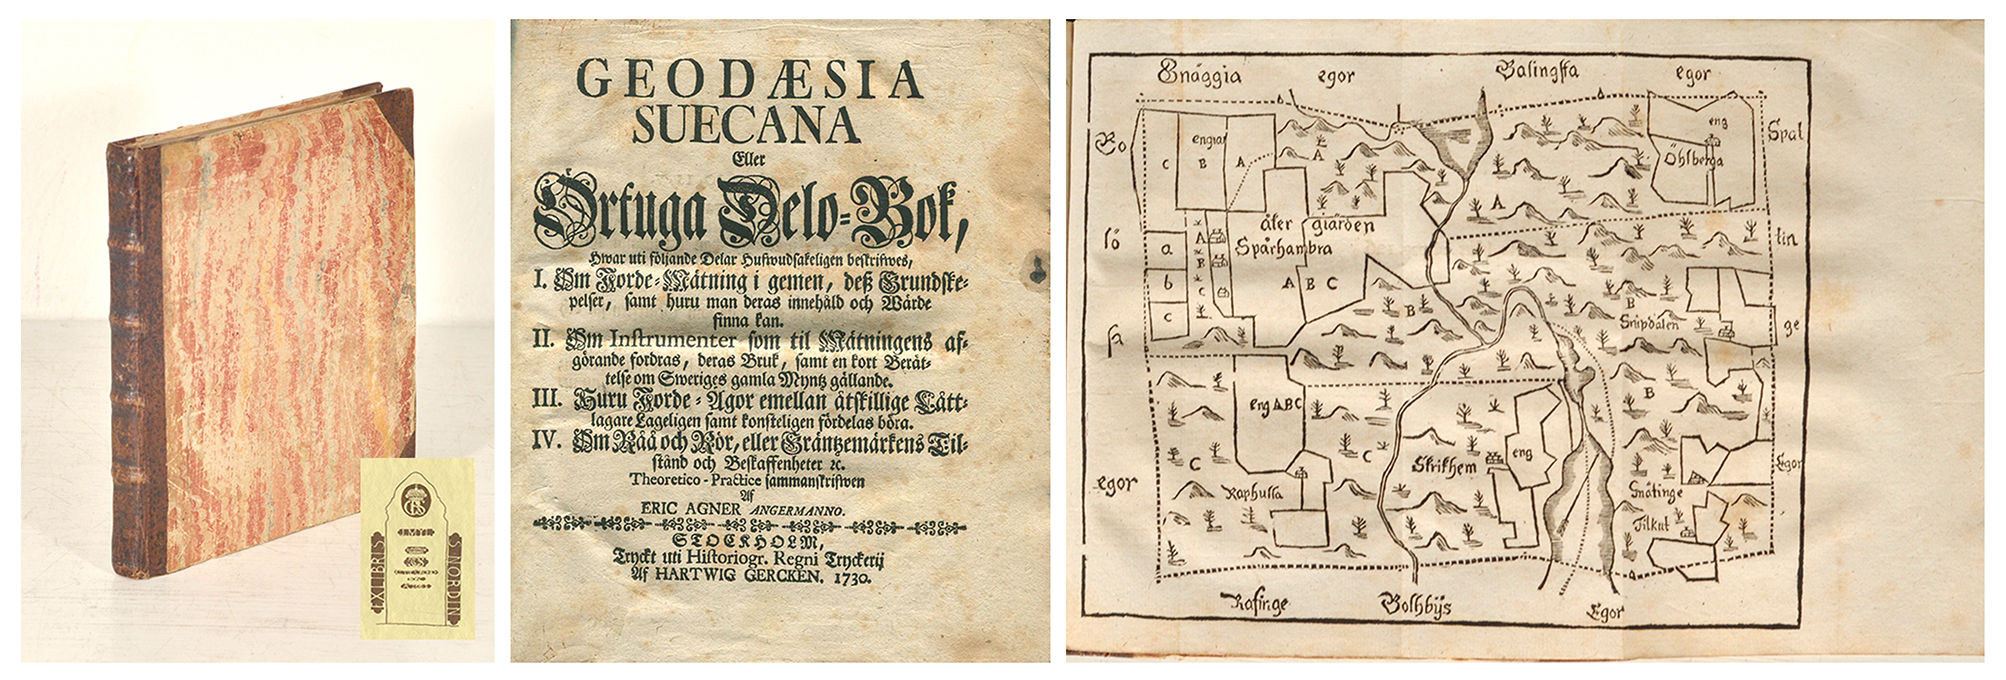 EXLIBRIS
S NORDIN
GEODÆSIA
SUECANA
Eller
Örtuga Delo-Bok,
Hwar uti följande Delar Hufwudsakeligen beskrifwes,
I. Om Jorde-Mätning i gemen, deß Grundske-
pelser, samt huru man deras innehåld och Wärde
finna kan.
II. Om Instrumenter som til Mätningens af-
görande fordras, deras Bruk, samt en kort Berät-
telse om Sweriges gamla Myntz gällande.
III. Huru Jorde-Ägor emellan åtskillige Lått-
lagare Lageligen samt konsteligen fördelas böra.
IV. Om Råå och Rör, eller Gräntzemärkens Til-
stånd och Beskaffenheter ꝛc.
Theoretico-Practice sammanskrifwen
Af
ERIC AGNER ANGERMANNO.
STOCKHOLM,
Tryckt uti Historiogr. Regni Tryckerij
Af HARTWIG GERCKEN. 1730.
Gnäggia egor Balingsta egor
Bo
lö
sa
egor
Spal
lin
ge
Egor
C B A
engiar
A
eng
Öhlberga
A
åker giärden
Spårhambra
A
B
C
a
b
c
A B C
B
B
Snipdalen
eng ABC
B
C
C
Raphulla
Skrikhem
eng
Snätinge
Tilkut
Rafinge Bolhbijs Egor